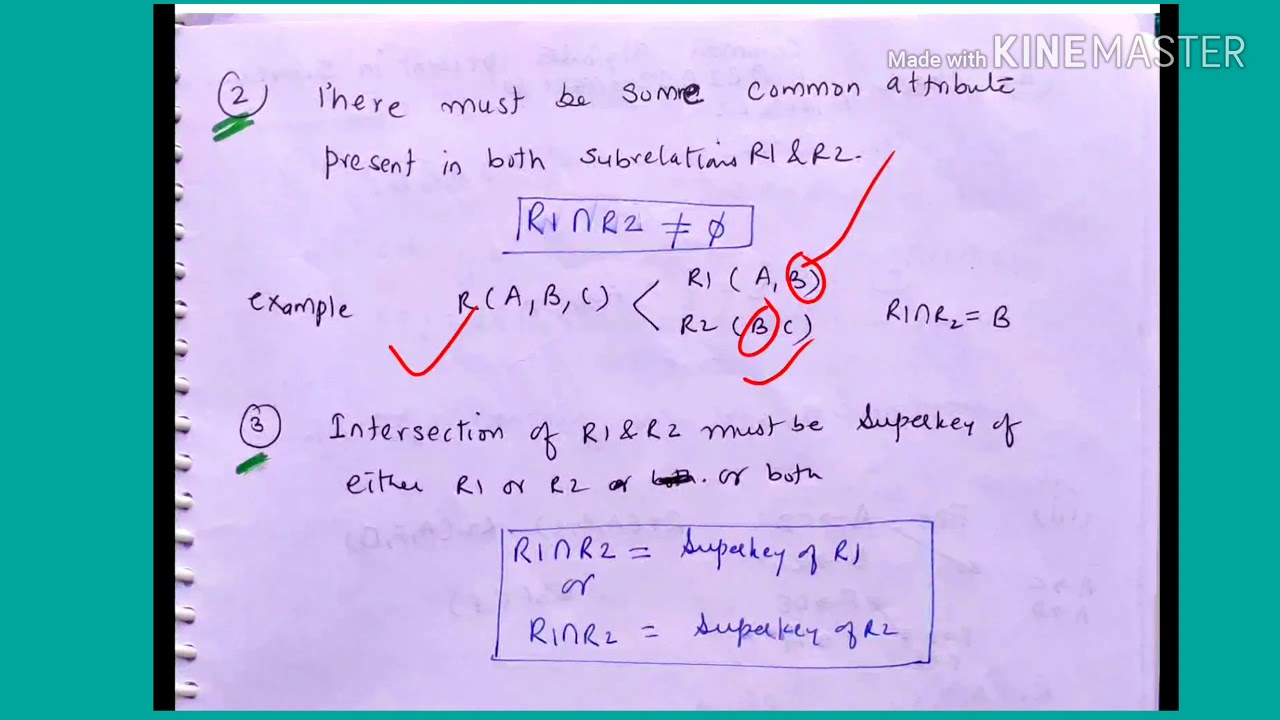 Made with KINEMASTER
② There must be some common attribute
present in both subrelations R1 & R2.
R1 ∩ R2 ≠ ∅
example R (A, B, C) < R1 (A, B)
R2 (B C) R1∩R2 = B
③ Intersection of R1 & R2 must be Superkey of
either R1 or R2 or both
R1∩R2 = Superkey of R1
or
R1∩R2 = Superkey of R2